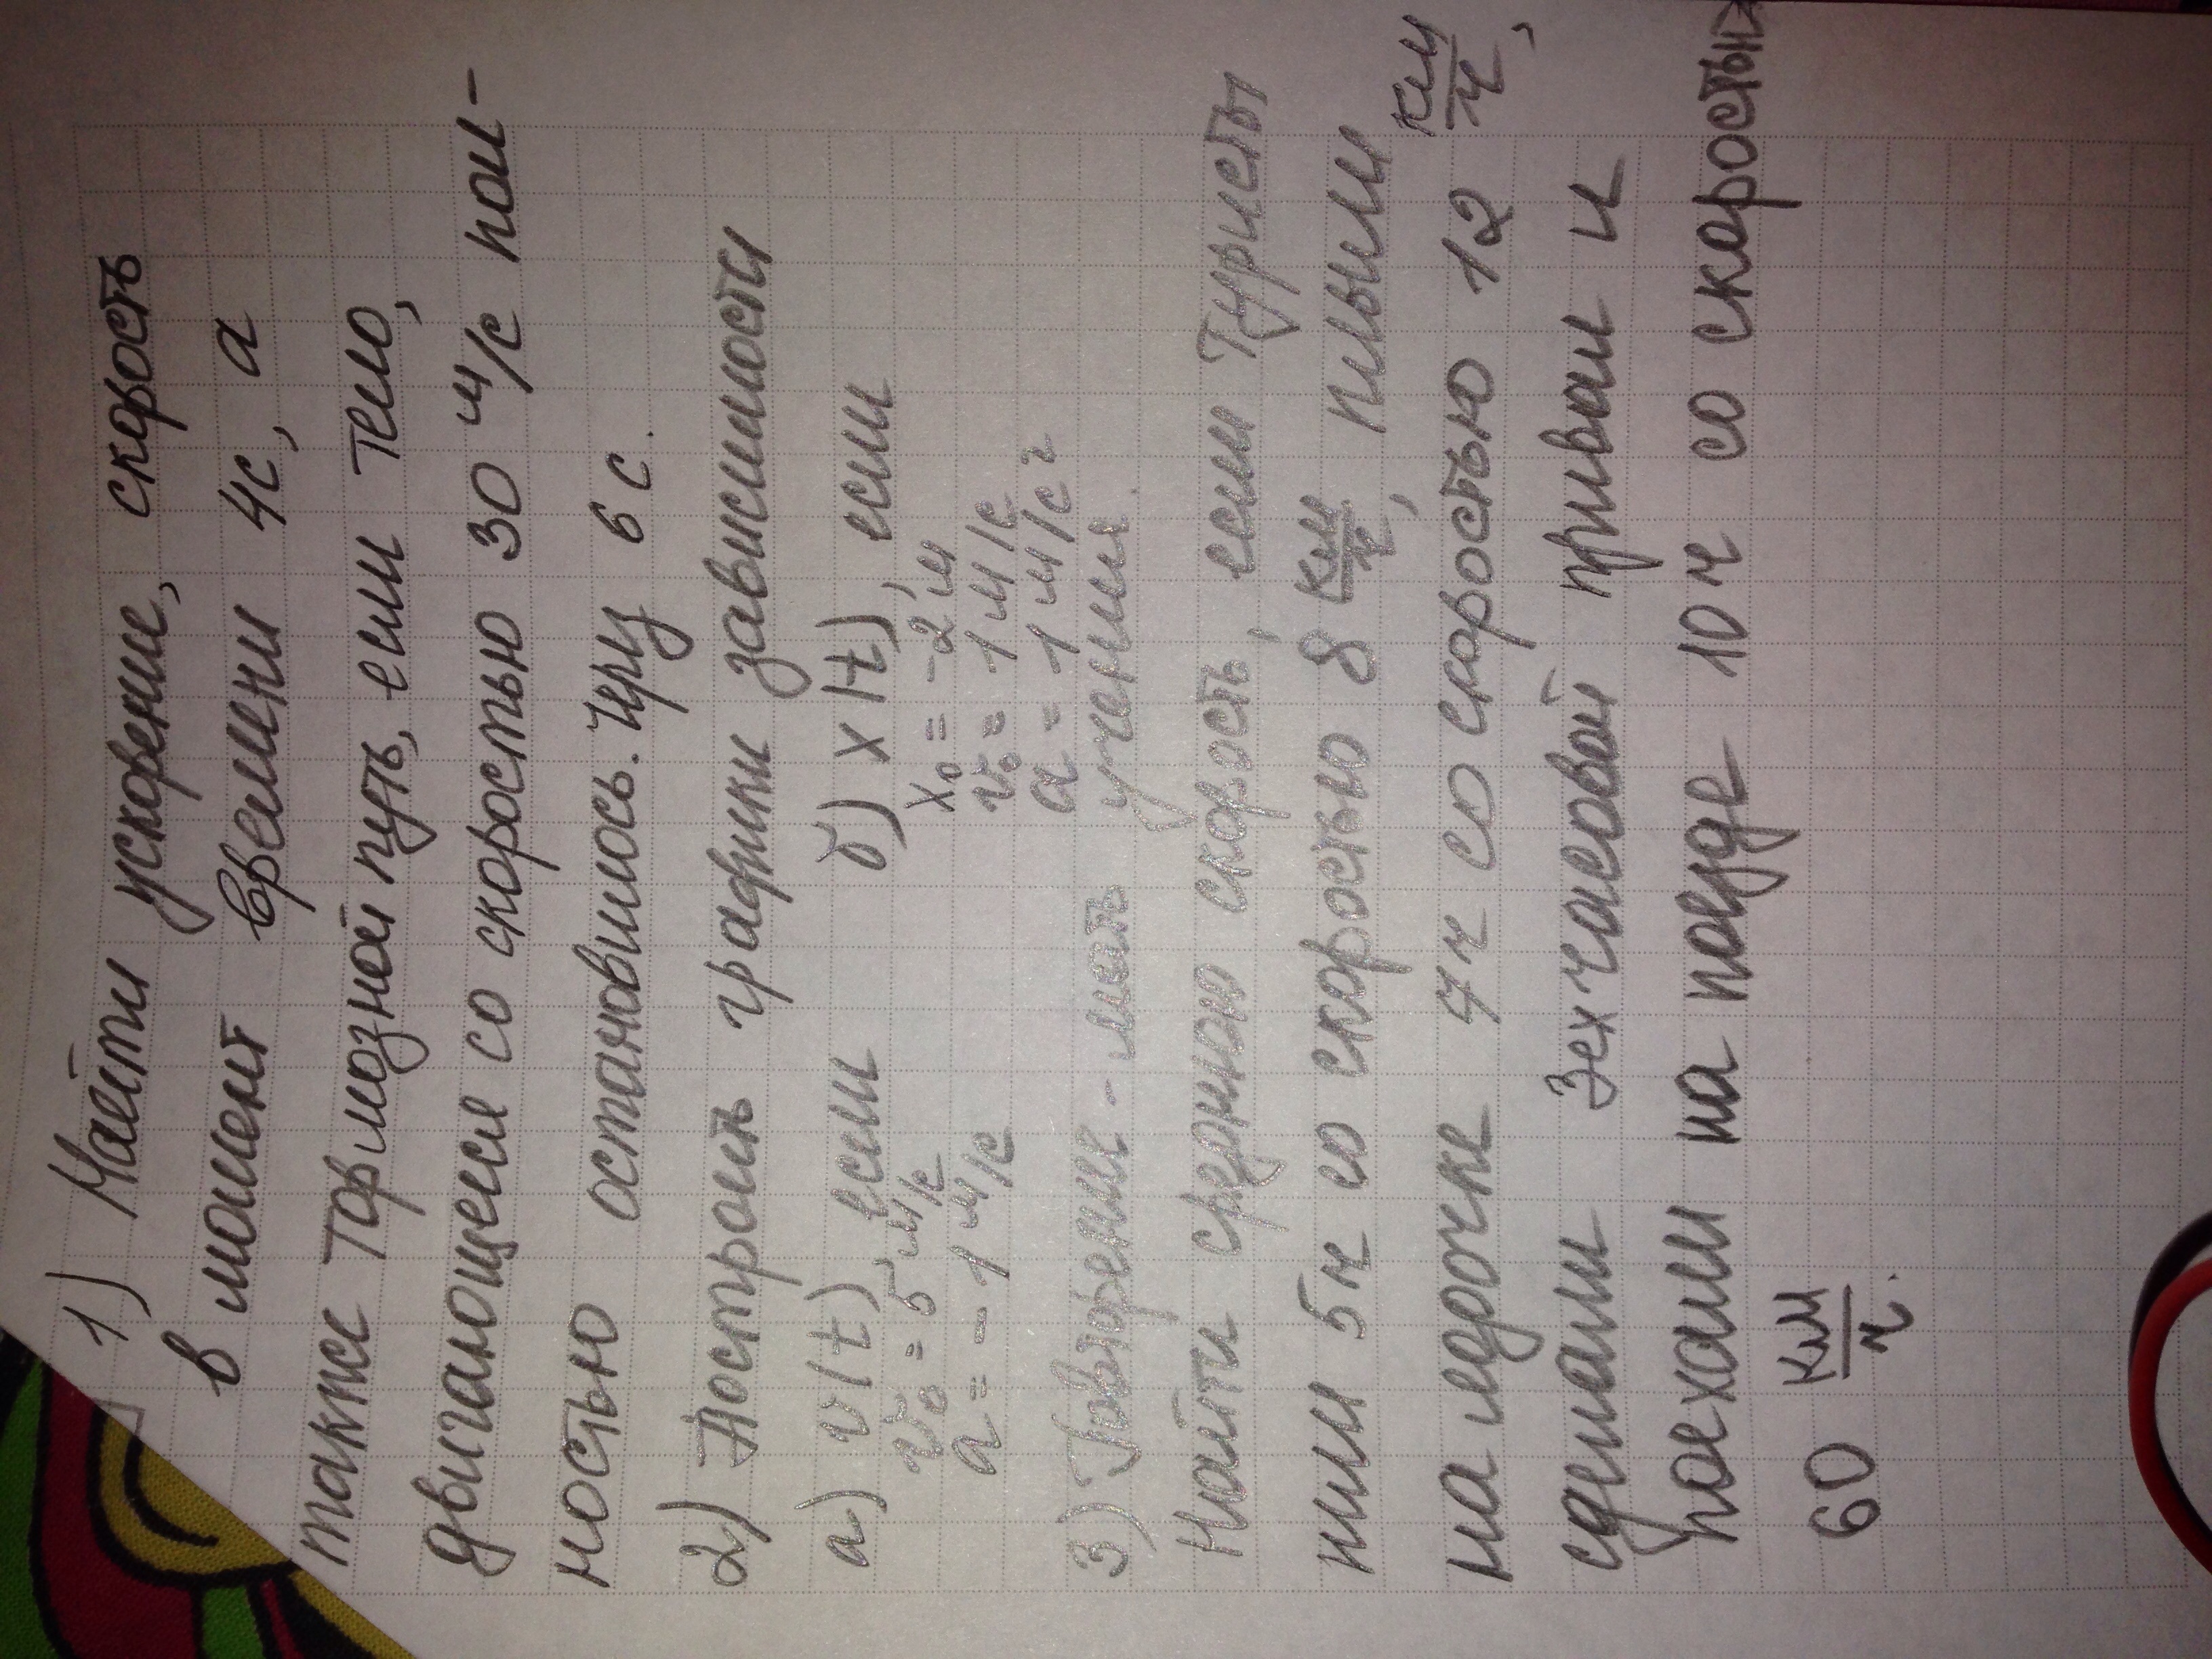 1) Найти ускорение, скорость
в момент времени 4с, а
также тормозной путь, если тело,
двигающееся со скоростью 30 м/с пол-
ностью остановилось. Чрц 6 с.
2) Построить графики зависимости
а) v(t), если б) x(t), если
v₀ = 5 м/с x₀ = -2 м
a = -1 м/с v₀ = 1 м/с
a = 1 м/с²
3) Повторение - мать учения.
Найти среднюю скорость, если туристы
шли 5ч со скоростью 8 км/ч, плыли
на лодочке 4ч со скоростью 12 км/ч,
сделали 3ех часовой привал и
поехали на поезде 10ч со скоростью
60 км/ч.